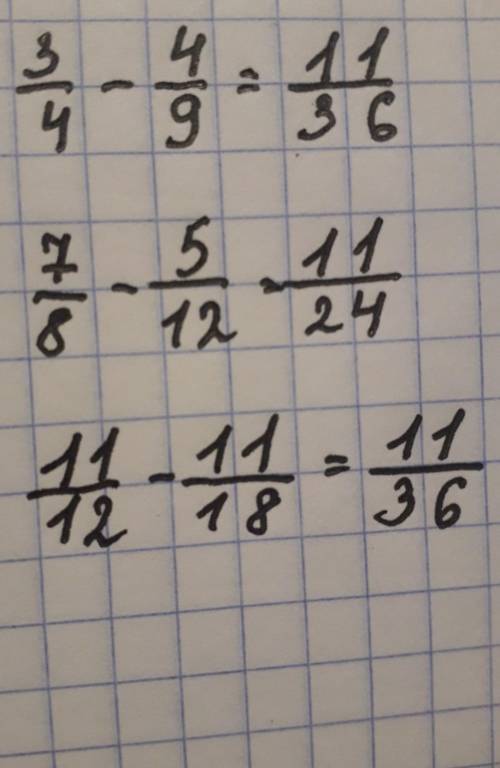 3/4 - 4/9 = 11/36
7/8 - 5/12 = 11/24
11/12 - 11/18 = 11/36